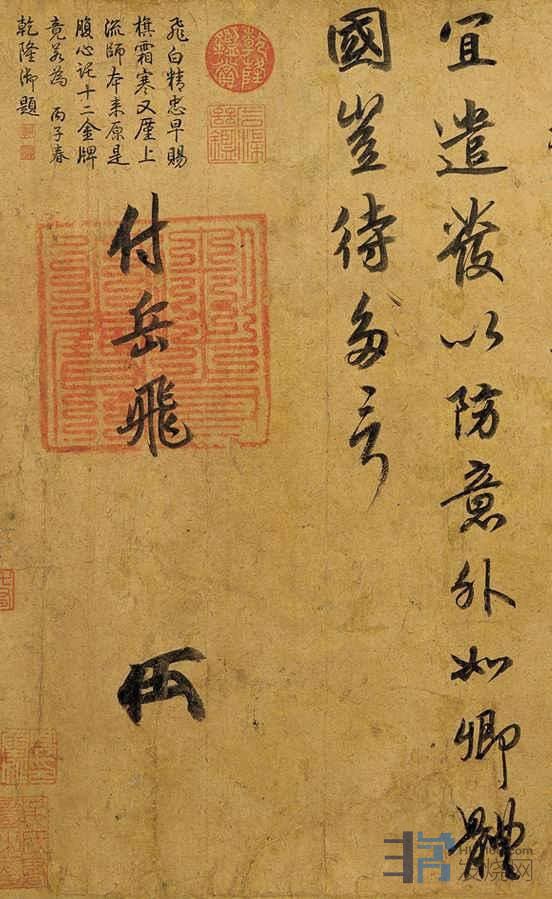 宜遣發以防意外如卿體
國豈待多言
付岳飛
飛白精忠早賜
旗霜寒又廑上
流師本来原是
腹心託十二金牌
竟若為 丙子春
乾隆御題
乾隆鑑賞
发烧网